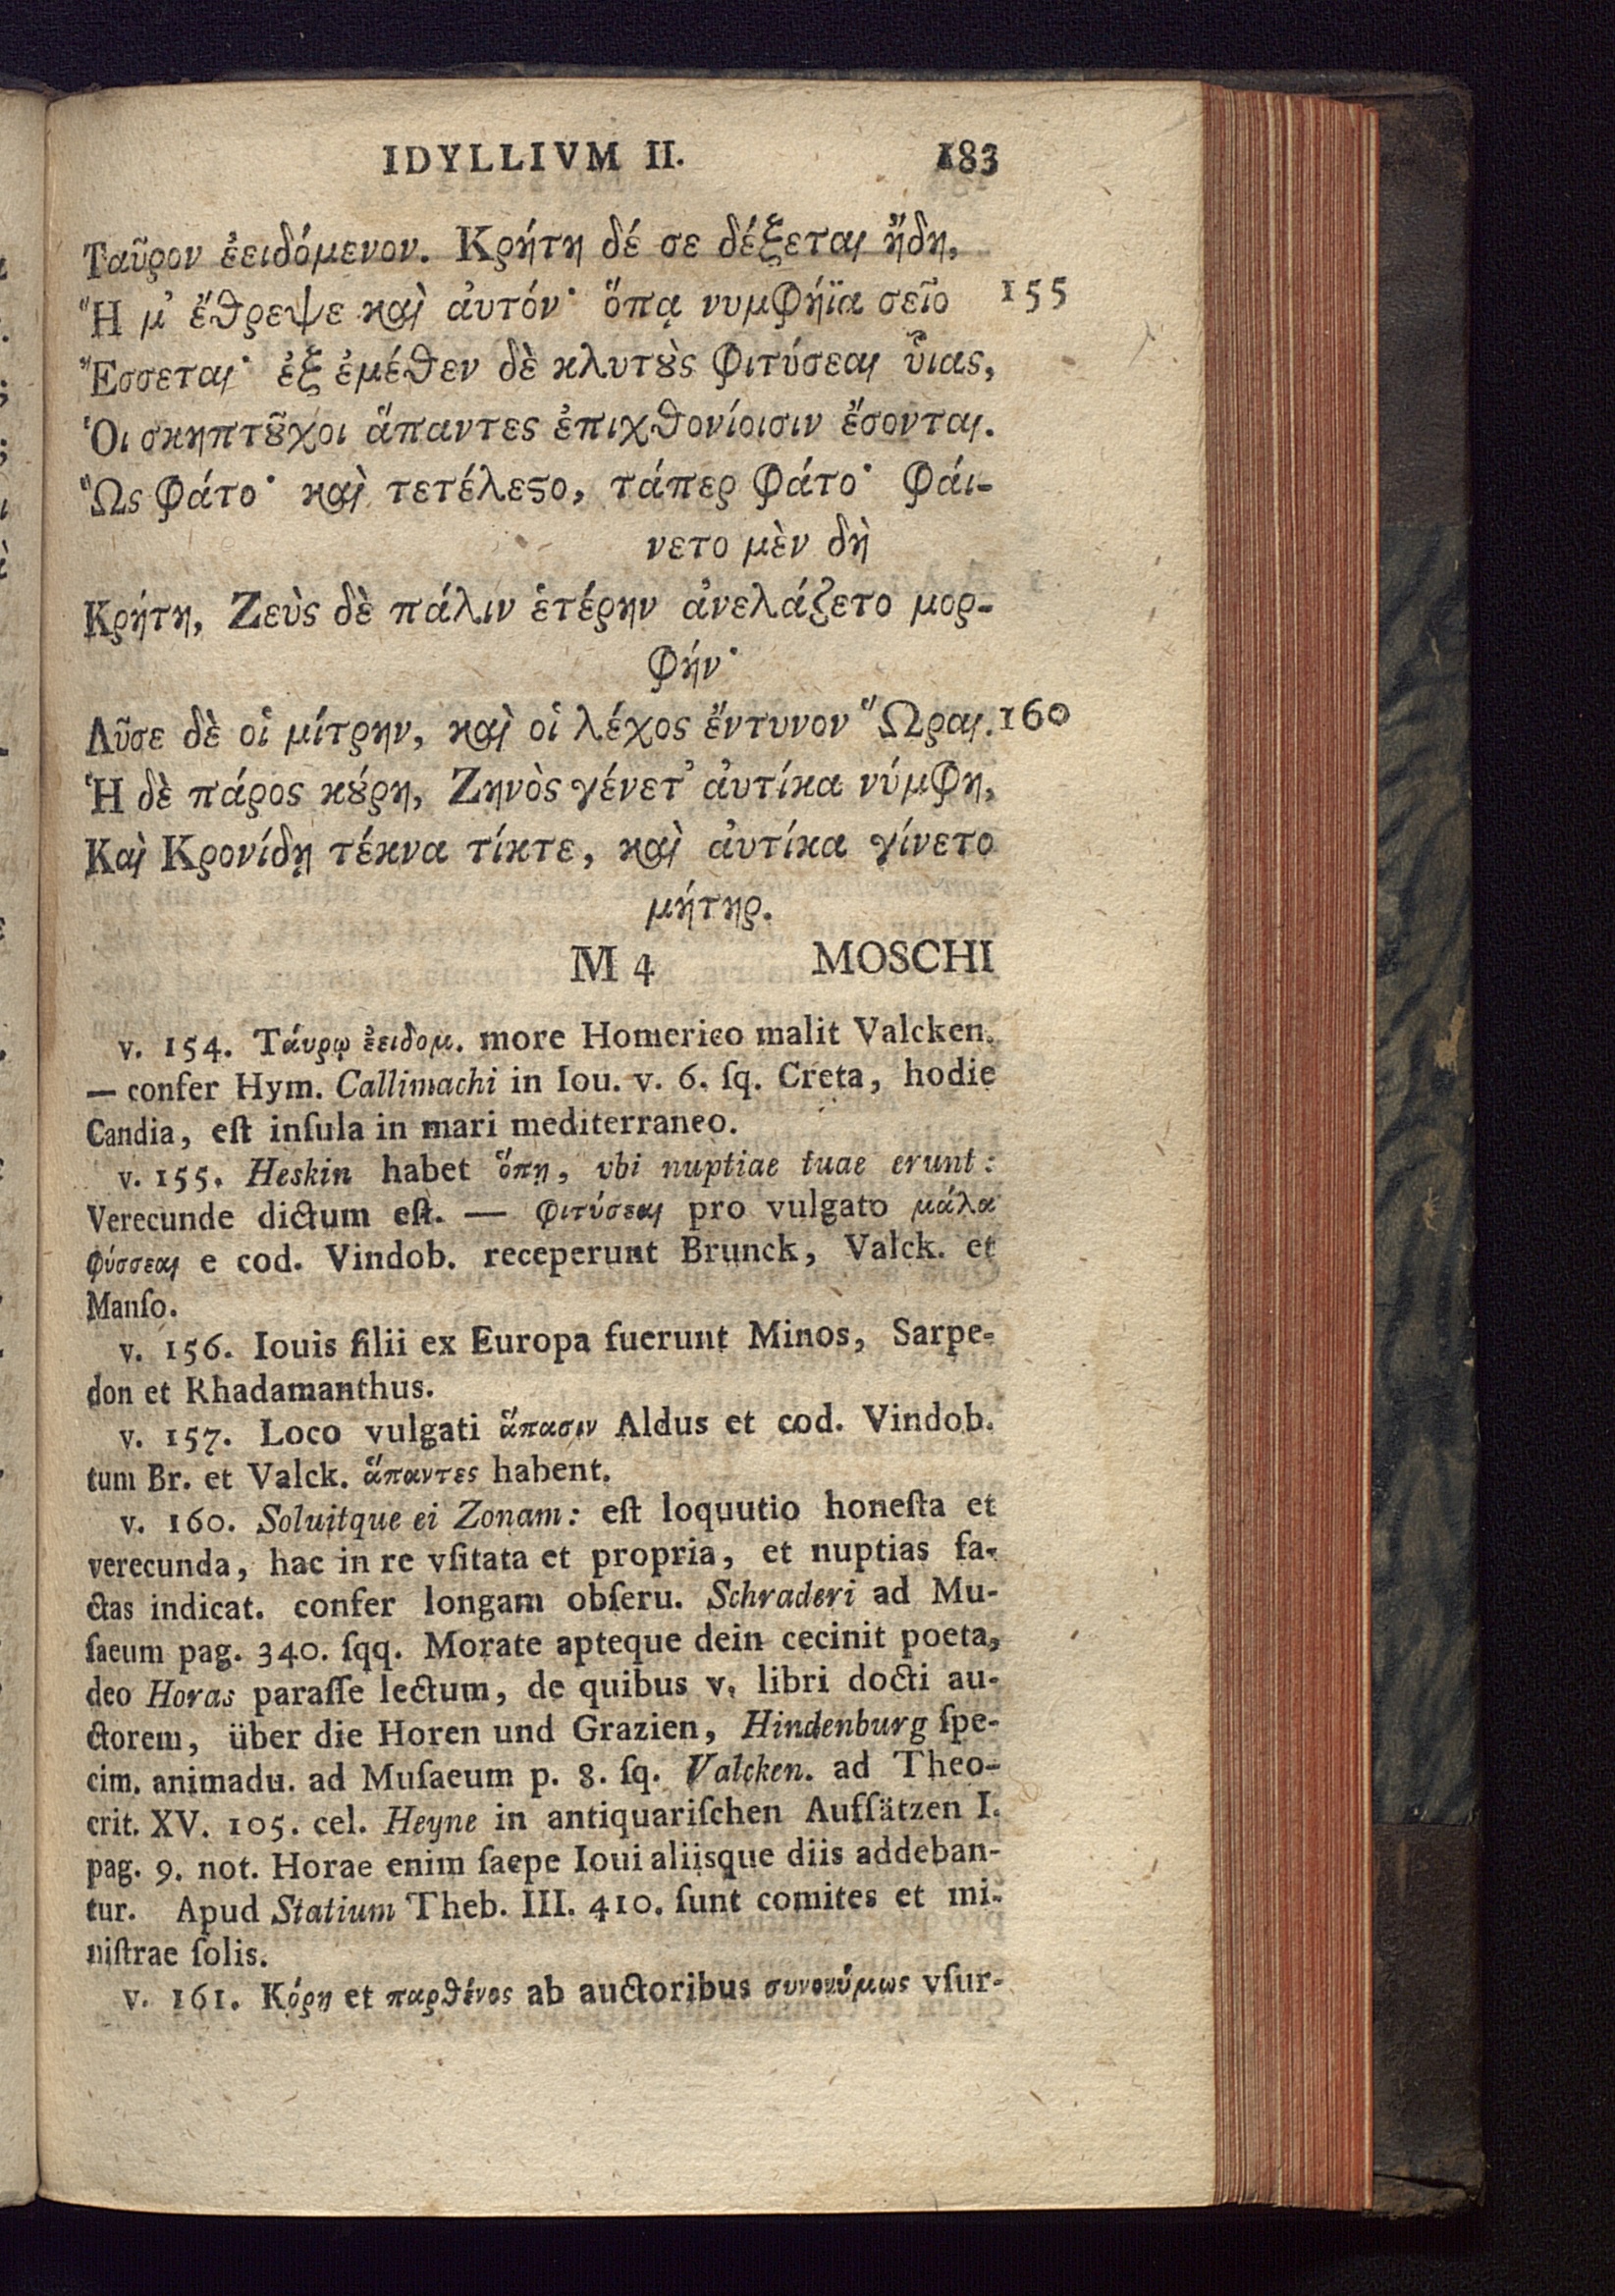 IDYLLIVM II. 183
Ταῦρον ἐειδόμενον. Κρήτη δέ σε δέξεται ἤδη,
Ἥ μ' ἔθρεψε καὶ ἀυτόν· ὅπᾳ νυμφήϊα σεῖο 155
Ἔσσεται· ἐξ ἐμέθεν δὲ κλυτȣ̀ς φιτύσεαι ὗιας,
Ὁι σκηπτȣ͂χοι ἅπαντες ἐπιχθονίοισιν ἔσονται.
Ὣς φάτο· καὶ τετέλεϛο, τάπερ φάτο· φάι-
νετο μὲν δὴ
Κρήτη, Ζεὺς δὲ πάλιν ἑτέρην ἀνελάζετο μορ-
φήν·
Λῦσε δὲ οἱ μίτρην, καὶ οἱ λέχος ἔντυνον Ὥραι. 160
Ἡ δὲ πάρος κȣ́ρη, Ζηνὸς γένετ' ἀυτίκα νύμφη,
Καὶ Κρονίδῃ τέκνα τίκτε, καὶ ἀυτίκα γίνετο
μήτηρ.
M 4 MOSCHI
v. 154. Τάυρῳ ἐειδομ. more Homerico malit Valcken.
— confer Hym. Callimachi in Iou. v. 6. ſq. Creta, hodie
Candia, eſt inſula in mari mediterraneo.
v. 155. Heskin habet ὅπη, vbi nuptiae tuae erunt:
Verecunde dictum eſt. — φιτύσεαι pro vulgato μάλα
φύσσεαι e cod. Vindob. receperunt Brunck, Valck. et
Manſo.
v. 156. Iouis filii ex Europa fuerunt Minos, Sarpe-
don et Rhadamanthus.
v. 157. Loco vulgati ἅπασιν Aldus et cod. Vindob.
tum Br. et Valck. ἅπαντες habent.
v. 160. Soluitque ei Zonam: eſt loquutio honeſta et
verecunda, hac in re vſitata et propria, et nuptias fa-
ctas indicat. confer longam obſeru. Schraderi ad Mu-
ſaeum pag. 340. ſqq. Morate apteque dein cecinit poeta,
deo Horas paraſſe lectum, de quibus v. libri docti au-
ctorem, über die Horen und Grazien, Hindenburg ſpe-
cim. animadu. ad Muſaeum p. 8. ſq. Valcken. ad Theo-
crit. XV. 105. cel. Heyne in antiquariſchen Aufſätzen I.
pag. 9. not. Horae enim ſaepe Ioui aliisque diis addeban-
tur. Apud Statium Theb. III. 410. ſunt comites et mi-
niſtrae ſolis.
v. 161. Κόρη et παρθένος ab auctoribus συνονύμως vſur-